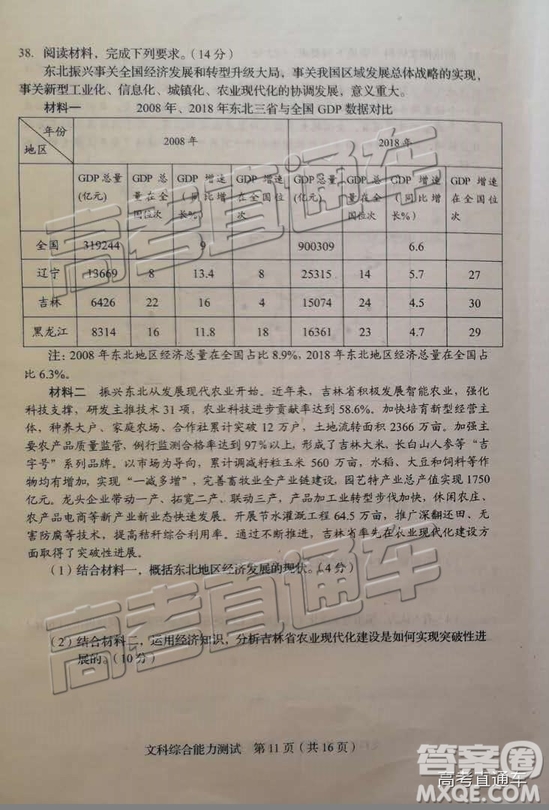 38. 阅读材料，完成下列要求。（14 分）
东北振兴事关全国经济发展和转型升级大局，事关我国区域发展总体战略的实现，
事关新型工业化、信息化、城镇化、农业现代化的协调发展，意义重大。
材料一 2008 年、2018 年东北三省与全国 GDP 数据对比
年份
地区 2008 年 2018 年
GDP 总量（亿元） GDP 总量在全国位次 GDP 增速（同比增长%） GDP 增速在全国位次 GDP 总量（亿元） GDP 总量在全国位次 GDP 增速（同比增长%） GDP 增速在全国位次
全国 319244 9 900309 6.6
辽宁 13669 8 13.4 8 25315 14 5.7 27
吉林 6426 22 16 4 15074 24 4.5 30
黑龙江 8314 16 11.8 18 16361 23 4.7 29
注：2008 年东北地区经济总量在全国占比 8.9%，2018 年东北地区经济总量在全国占
比 6.3%。
材料二 振兴东北从发展现代农业开始。近年来，吉林省积极发展智能农业，强化
科技支撑，研发主推技术 31 项，农业科技进步贡献率达到 58.6%。加快培育新型经营主
体，种养大户、家庭农场、合作社累计突破 12 万户，土地流转面积 2366 万亩。加强主
要农产品质量监管，例行监测合格率达到 97%以上，形成了吉林大米、长白山人参等“吉
字号”系列品牌。以市场为导向，累计调减籽粒玉米 560 万亩，水稻、大豆和饲料等作
物均有增加，实现“一减多增”，完善畜牧业全产业链建设，园艺特产业总产值实现 1750
亿元。龙头企业带动一产、拓宽二产、联动三产，产品加工业转型步伐加快，休闲农庄、
农产品电商等新产业新业态快速发展。开展节水灌溉工程 64.5 万亩，推广深翻还田、无
害防腐等技术，提高秸秆综合利用率。通过不断推进，吉林省率先在农业现代化建设方
面取得了突破性进展。
（1）结合材料一，概括东北地区经济发展的现状。（4 分）
（2）结合材料二，运用经济知识，分析吉林省农业现代化建设是如何实现突破性进
展的。（10 分）
文科综合能力测试 第 11 页（共 16 页）
高考直通车
高考直通车
答案圈
高考直通车
MXQE.COM